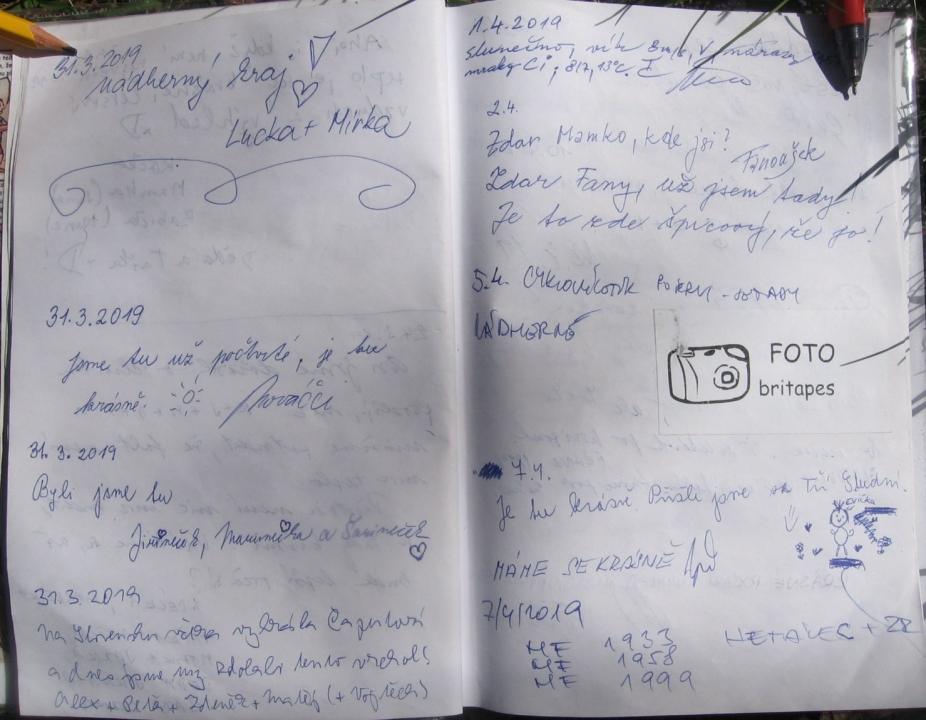 31.3.2019
nádherný kraj!
Lucka + Mirka
31.3.2019
Jsme tu už počtvrté, je tu
krásně.
31.3.2019
Byli jsme tu
Jiříneček, Maminečka a
31.3.2019
Na Slovensku včera vyhrála Čaputová
a dnes jsme my zdolali tento vrchol!
Alex + Peta + Zdeněk + Matěj (+ Vojtěch)
1.4.2019
slunečno, vítr 8m/s, v nárazu
mraky Ci, 8/7, 13°C.
2.4.
Zdar Mamko, kde jsi?
Fanoušek
Zdar Fany, už jsem tady!
Je to zde špicový, že jo!
5.4.
NÁDHERNĚ
FOTO
britapes
7.4.
Je tu krásně Přišli jsme ze Tří Studní.
MÁME SE KRÁSNĚ
7/4/2019
ME 1933
ME 1958
ME 1999